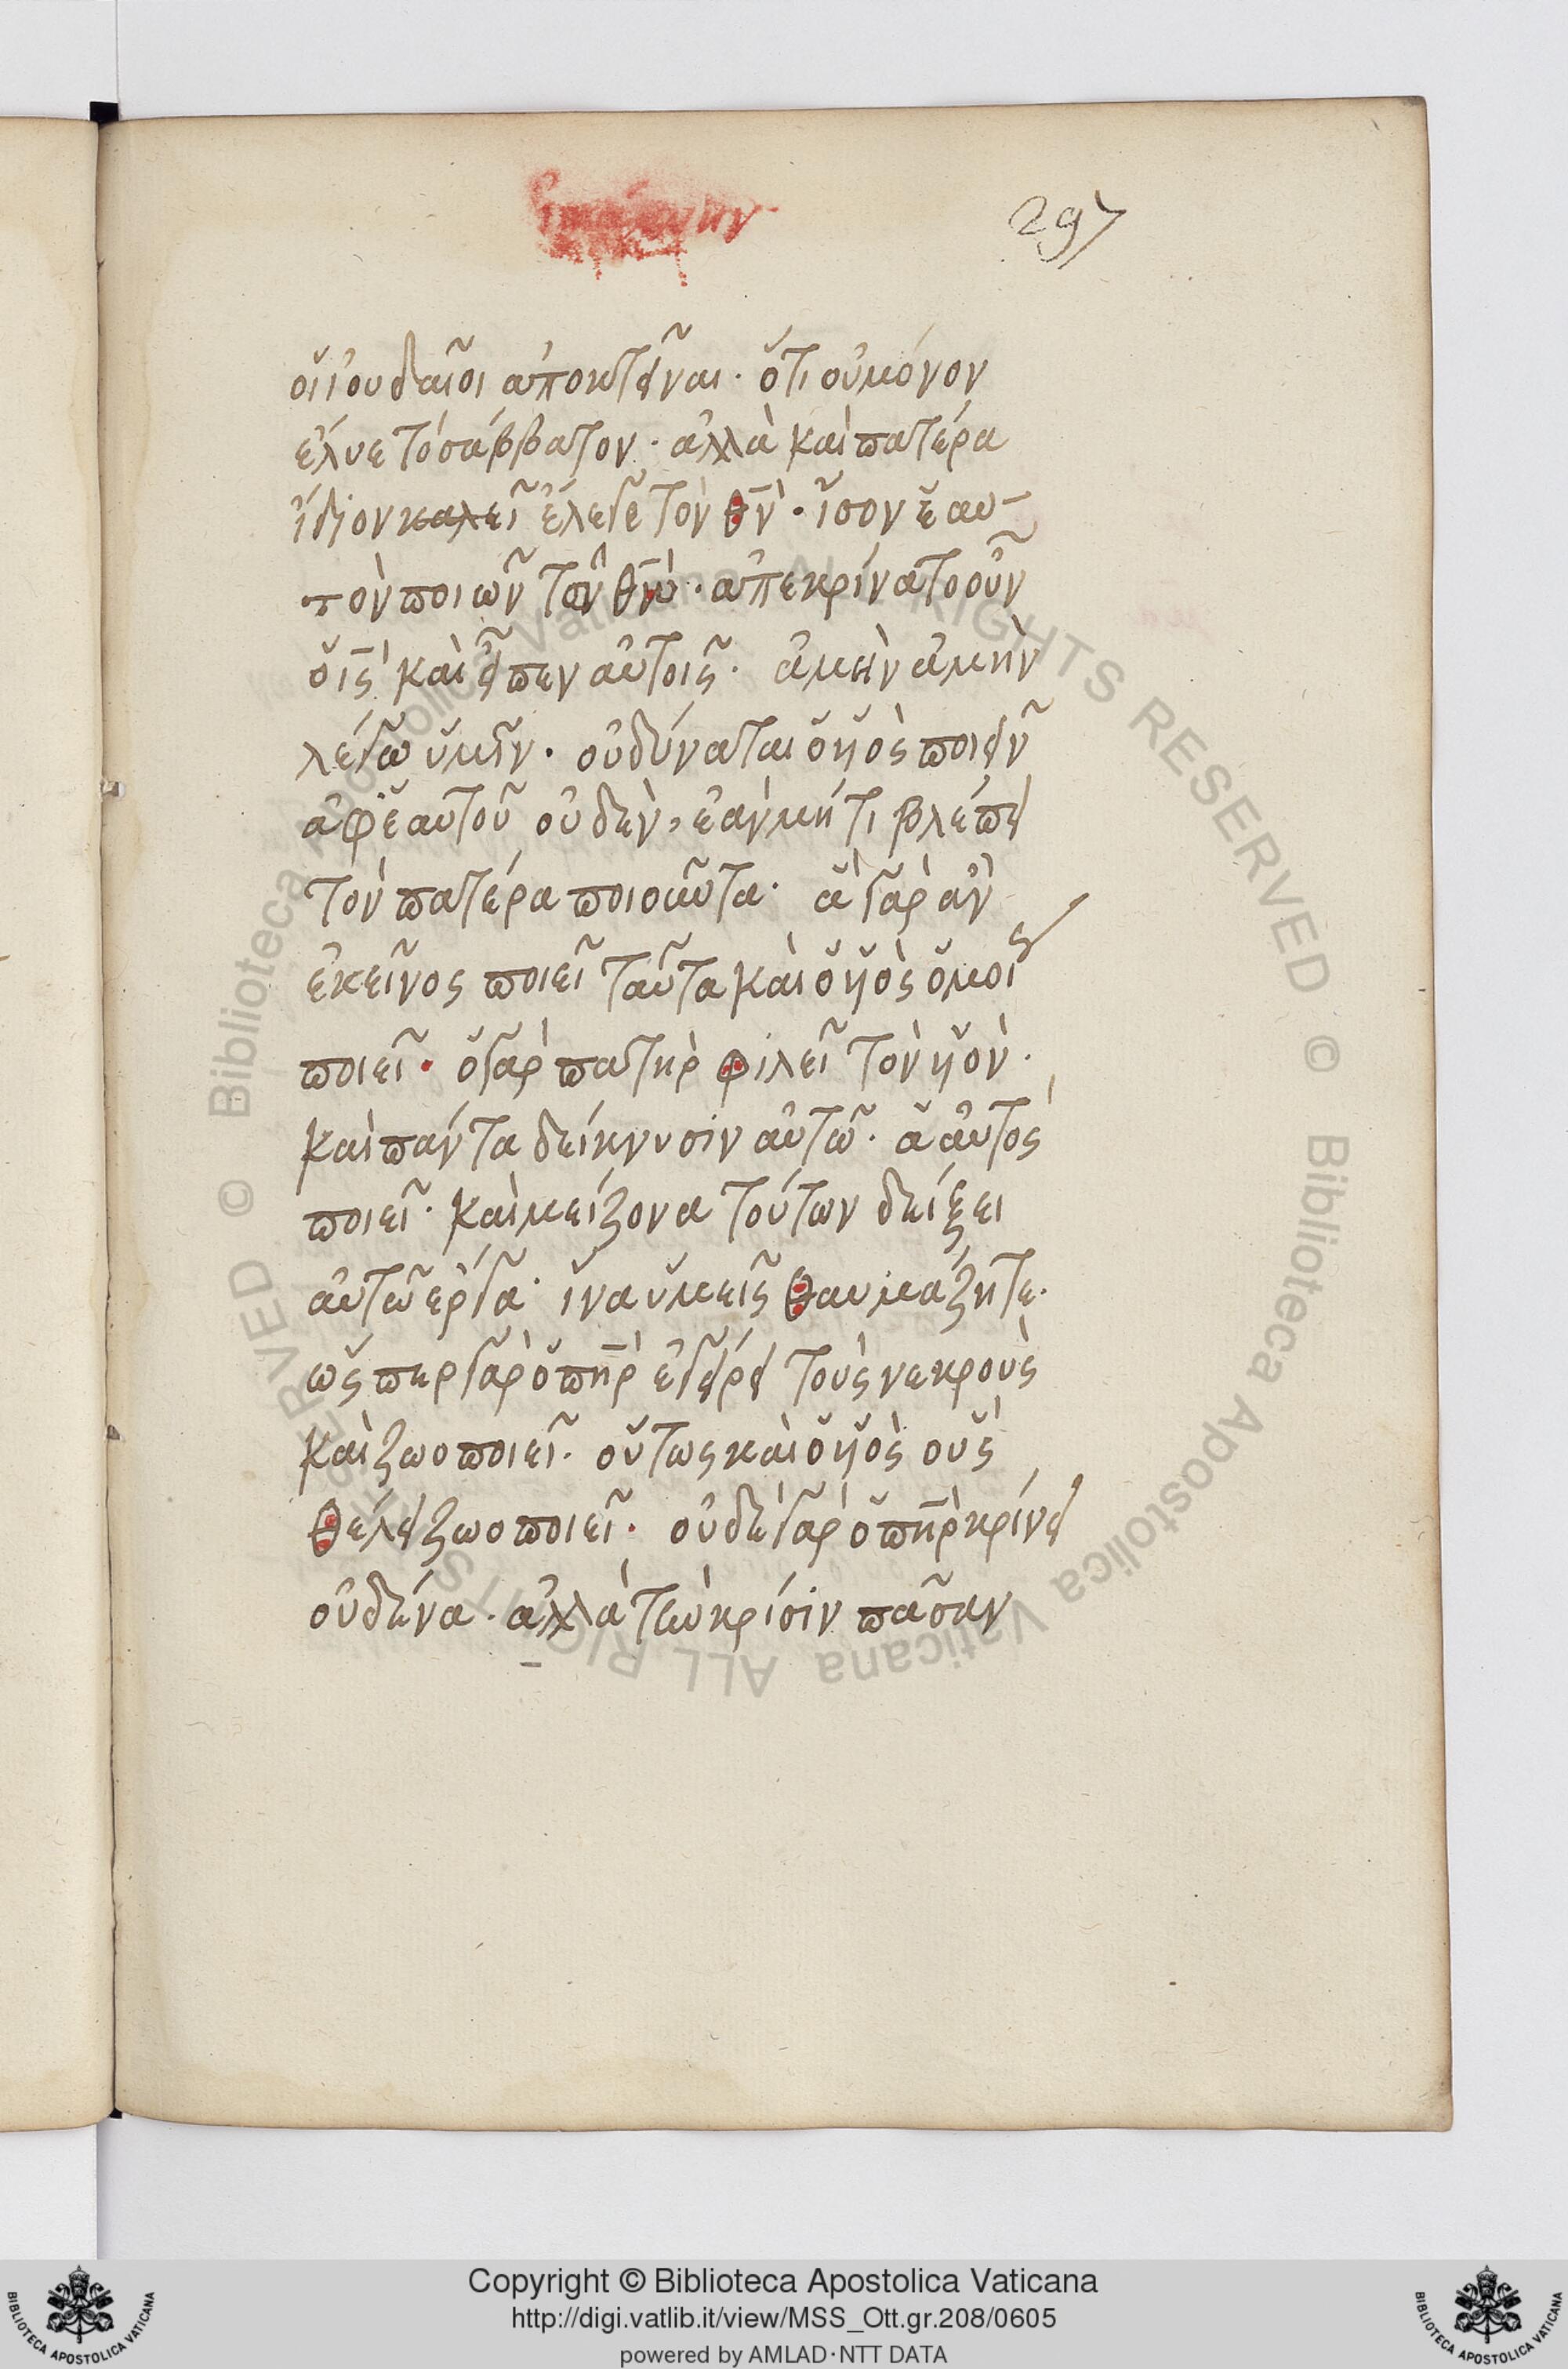 297
οἱ ἰουδαῖοι ἀποκτεῖναι· ὅτι οὐ μόνον
ἔλυε τὸ σάββατον· ἀλλὰ καὶ πατέρα
ἴδιον καλεῖ ἔλεγε τὸν θ̅ν̅· ἶσον ἑαυ-
τὸν ποιῶν τῶ θ̅ω̅· ἀπεκρίνατο οὖν
ὁ ι̅ς̅ καὶ εἶπεν αὐτοῖς· ἀμὴν ἀμὴν
λέγω ὑμῖν· οὐ δύναται ὁ υἱὸς ποιεῖν
ἀφ' ἑαυτοῦ οὐδὲν, ἐὰν μή τι βλέπει
τὸν πατέρα ποιοῦντα· ἃ γὰρ ἂν
ἐκεῖνος ποιεῖ ταῦτα καὶ ὁ υἱὸς ὁμοίως
ποιεῖ· ὁ γὰρ πατὴρ φιλεῖ τὸν υἱὸν·
καὶ πάντα δείκνυσιν αὐτῶ· ἃ αὐτὸς
ποιεῖ· καὶ μείζονα τούτων δείξει
αὐτῶ ἔργα· ἵνα ὑμεῖς θαυμάζητε·
ὥσπερ γὰρ ὁ π̅η̅ρ̅ ἐγείρει τοὺς νεκροὺς
καὶ ζωοποιεῖ· οὕτως καὶ ὁ υἱὸς οὓς
θέλει ζωοποιεῖ· οὐδὲ γὰρ ὁ π̅η̅ρ̅ κρίνει
οὐδένα· ἀλλὰ τὴν κρίσιν πᾶσαν
© Biblioteca Apostolica Vaticana ALL RIGHTS RESERVED © Biblioteca Apostolica Vaticana ALL RIGHTS RESERVED
Copyright © Biblioteca Apostolica Vaticana
http://digi.vatlib.it/view/MSS_Ott.gr.208/0605
powered by AMLAD·NTT DATA
BIBLIOTECA APOSTOLICA VATICANA
BIBLIOTECA APOSTOLICA VATICANA